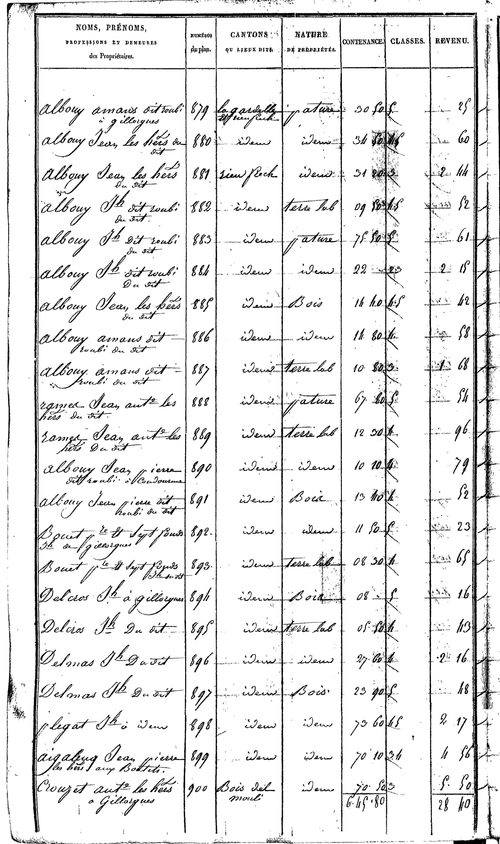 NOMS, PRÉNOMS, PROFESSIONS ET DEMEURES des Propriétaires. NUMÉROS du plan. CANTONS OU LIEUX DITS. NATURE DE PROPRIÉTÉS. CONTENANCE. CLASSES. REVENU.
albouy amans dit roubi 879 pature 30 50 5 25
à gillorgues
albouy Jean les hérs du 880 idem idem 34 50 45 60
dit
albouy Jean les hérs 881 idem 31 20 3 2 44
Du dit
albouy Jh dit roubi 882 idem terre lab 09 45 52
du dit
albouy Jh dit roubi 883 idem pature 75 50 5 61
du dit
albouy Jh dit roubi 884 idem idem 22 23 2 15
Du dit
albouy Jean les hérs 885 idem Bois 14 40 45 42
du dit
albouy amans dit 886 idem idem 14 80 4 58
roubi du dit
albouy amans dit 887 idem terre lab 10 80 3 1 68
roubi du dit
ramer Jean ante les 888 idem pature 67 80 5 54
hérs du dit
ramer Jean ante les 889 idem terre lab 12 30 4 96
hérs Du dit
albouy Jean pierre 890 idem idem 10 10 4 79
dit roubi à
albouy Jean pierre dit 891 idem Bois 13 40 4 52
roubi du dit
Bouet pre 892 idem idem 11 50 5 23
gillorgues
Bouet pre 893 idem terre lab 08 30 4 65
Delcros Jh à gillorgues 894 idem Bois 08 5 16
Delcros Jh Du dit 895 idem terre lab 05 50 4 43
Delmas Jh Du dit 896 idem idem 27 60 4 2 16
Delmas Jh Du dit 897 idem Bois 23 90 5 48
plegat Jh à idem 898 idem idem 73 60 45 2 17
Jean pierre 899 idem idem 70 10 34 4 56
les hérs aux
Crouzet ante les hérs 900 Bois del idem 70 50 3 5 50
à Gillorgues mouli 6 45 80 28 40